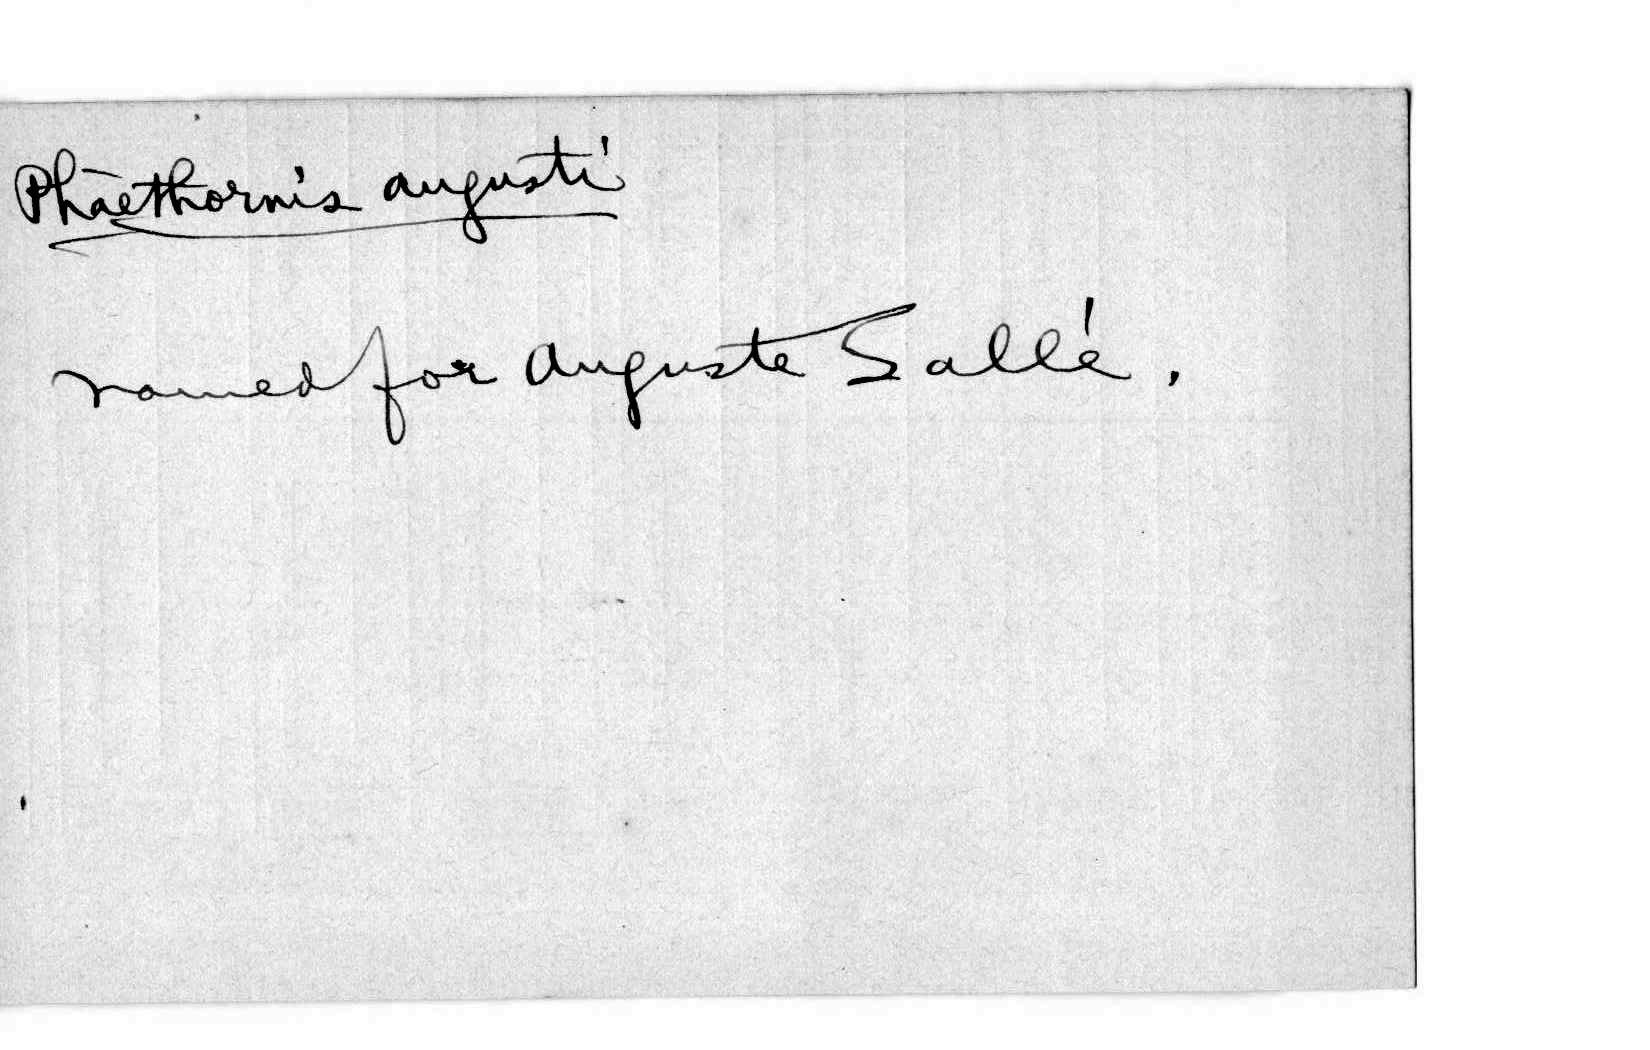 Phaethornis augusti
named for Auguste Sallé.